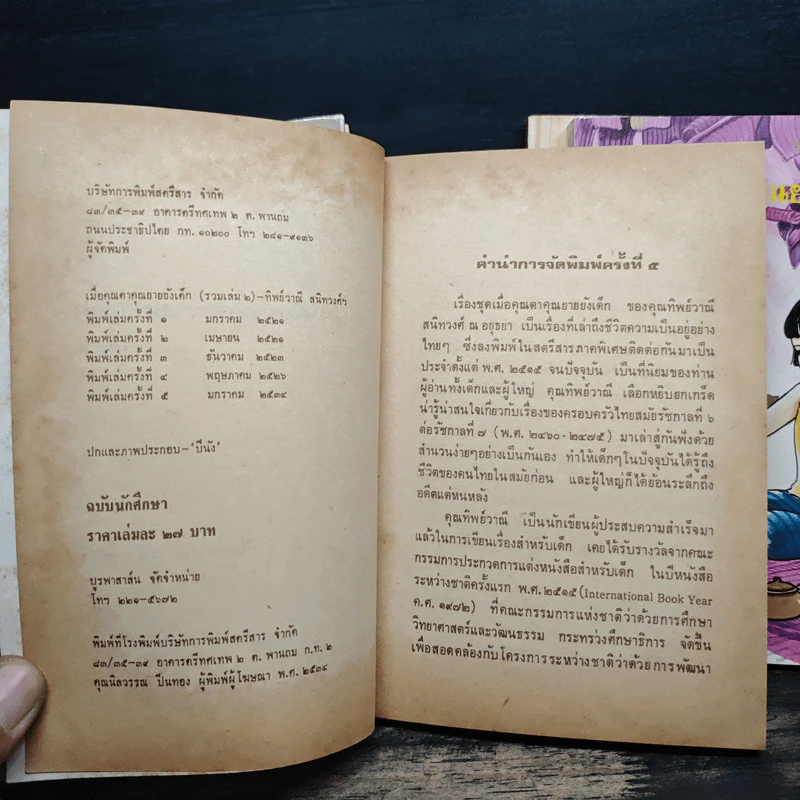 บริษัทการพิมพ์สตรีสาร จำกัด
๘๓/๓๕-๓๙ อาคารศรีทศเทพ ๒ ต. พานถม
ถนนประชาธิปไตย กท. ๑๐๒๐๐ โทฯ ๒๘๑-๙๑๓๖
ผู้จัดพิมพ์
เมื่อคุณตาคุณยายยังเด็ก (รวมเล่ม ๒)-ทิพย์วาณี สนิทวงศ์ฯ
พิมพ์เล่มครั้งที่ ๑ มกราคม ๒๕๒๑
พิมพ์เล่มครั้งที่ ๒ เมษายน ๒๕๒๑
พิมพ์เล่มครั้งที่ ๓ ธันวาคม ๒๕๒๓
พิมพ์เล่มครั้งที่ ๔ พฤษภาคม ๒๕๒๖
พิมพ์เล่มครั้งที่ ๕ มกราคม ๒๕๓๔
ปกและภาพประกอบ-'ปีนัง'
ฉบับนักศึกษา
ราคาเล่มละ ๒๗ บาท
บูรพาสาส์น จัดจำหน่าย
โทฯ ๒๒๑-๕๖๗๒
พิมพ์ที่โรงพิมพ์บริษัทการพิมพ์สตรีสาร จำกัด
๘๓/๓๕-๓๙ อาคารศรีทศเทพ ๒ ต. พานถม ก.ท. ๒
คุณนิลวรรณ ปิ่นทอง ผู้พิมพ์ผู้โฆษณา พ.ศ. ๒๕๓๔
คำนำการจัดพิมพ์ครั้งที่ ๕
เรื่องชุดเมื่อคุณตาคุณยายยังเด็ก ของคุณทิพย์วาณี
สนิทวงศ์ ณ อยุธยา เป็นเรื่องที่เล่าถึงชีวิตความเป็นอยู่อย่าง
ไทยๆ ซึ่งลงพิมพ์ในสตรีสารภาคพิเศษติดต่อกันมาเป็น
ประจำตั้งแต่ พ.ศ. ๒๕๑๕ จนปัจจุบัน เป็นที่นิยมของท่าน
ผู้อ่านทั้งเด็กและผู้ใหญ่ คุณทิพย์วาณี เลือกหยิบยกเกร็ด
น่ารู้น่าสนใจเกี่ยวกับเรื่องของครอบครัวไทยสมัยรัชกาลที่ ๖
ต่อรัชกาลที่ ๗ (พ.ศ. ๒๔๖๐-๒๔๗๕) มาเล่าสู่กันฟังด้วย
สำนวนง่ายๆอย่างเป็นกันเอง ทำให้เด็กๆในปัจจุบันได้รู้ถึง
ชีวิตของคนไทยในสมัยก่อน และผู้ใหญ่ก็ได้ย้อนระลึกถึง
อดีตแต่หนหลัง
คุณทิพย์วาณี เป็นนักเขียนผู้ประสบความสำเร็จมา
แล้วในการเขียนเรื่องสำหรับเด็ก เคยได้รับรางวัลจากคณะ
กรรมการประกวดการแต่งหนังสือสำหรับเด็ก ในปีหนังสือ
ระหว่างชาติครั้งแรก พ.ศ. ๒๕๑๕ (International Book Year
ค.ศ. ๑๙๗๒) ที่คณะกรรมการแห่งชาติว่าด้วยการศึกษา
วิทยาศาสตร์และวัฒนธรรม กระทรวงศึกษาธิการ จัดขึ้น
เพื่อสอดคล้องกับโครงการระหว่างชาติว่าด้วยการพัฒนา